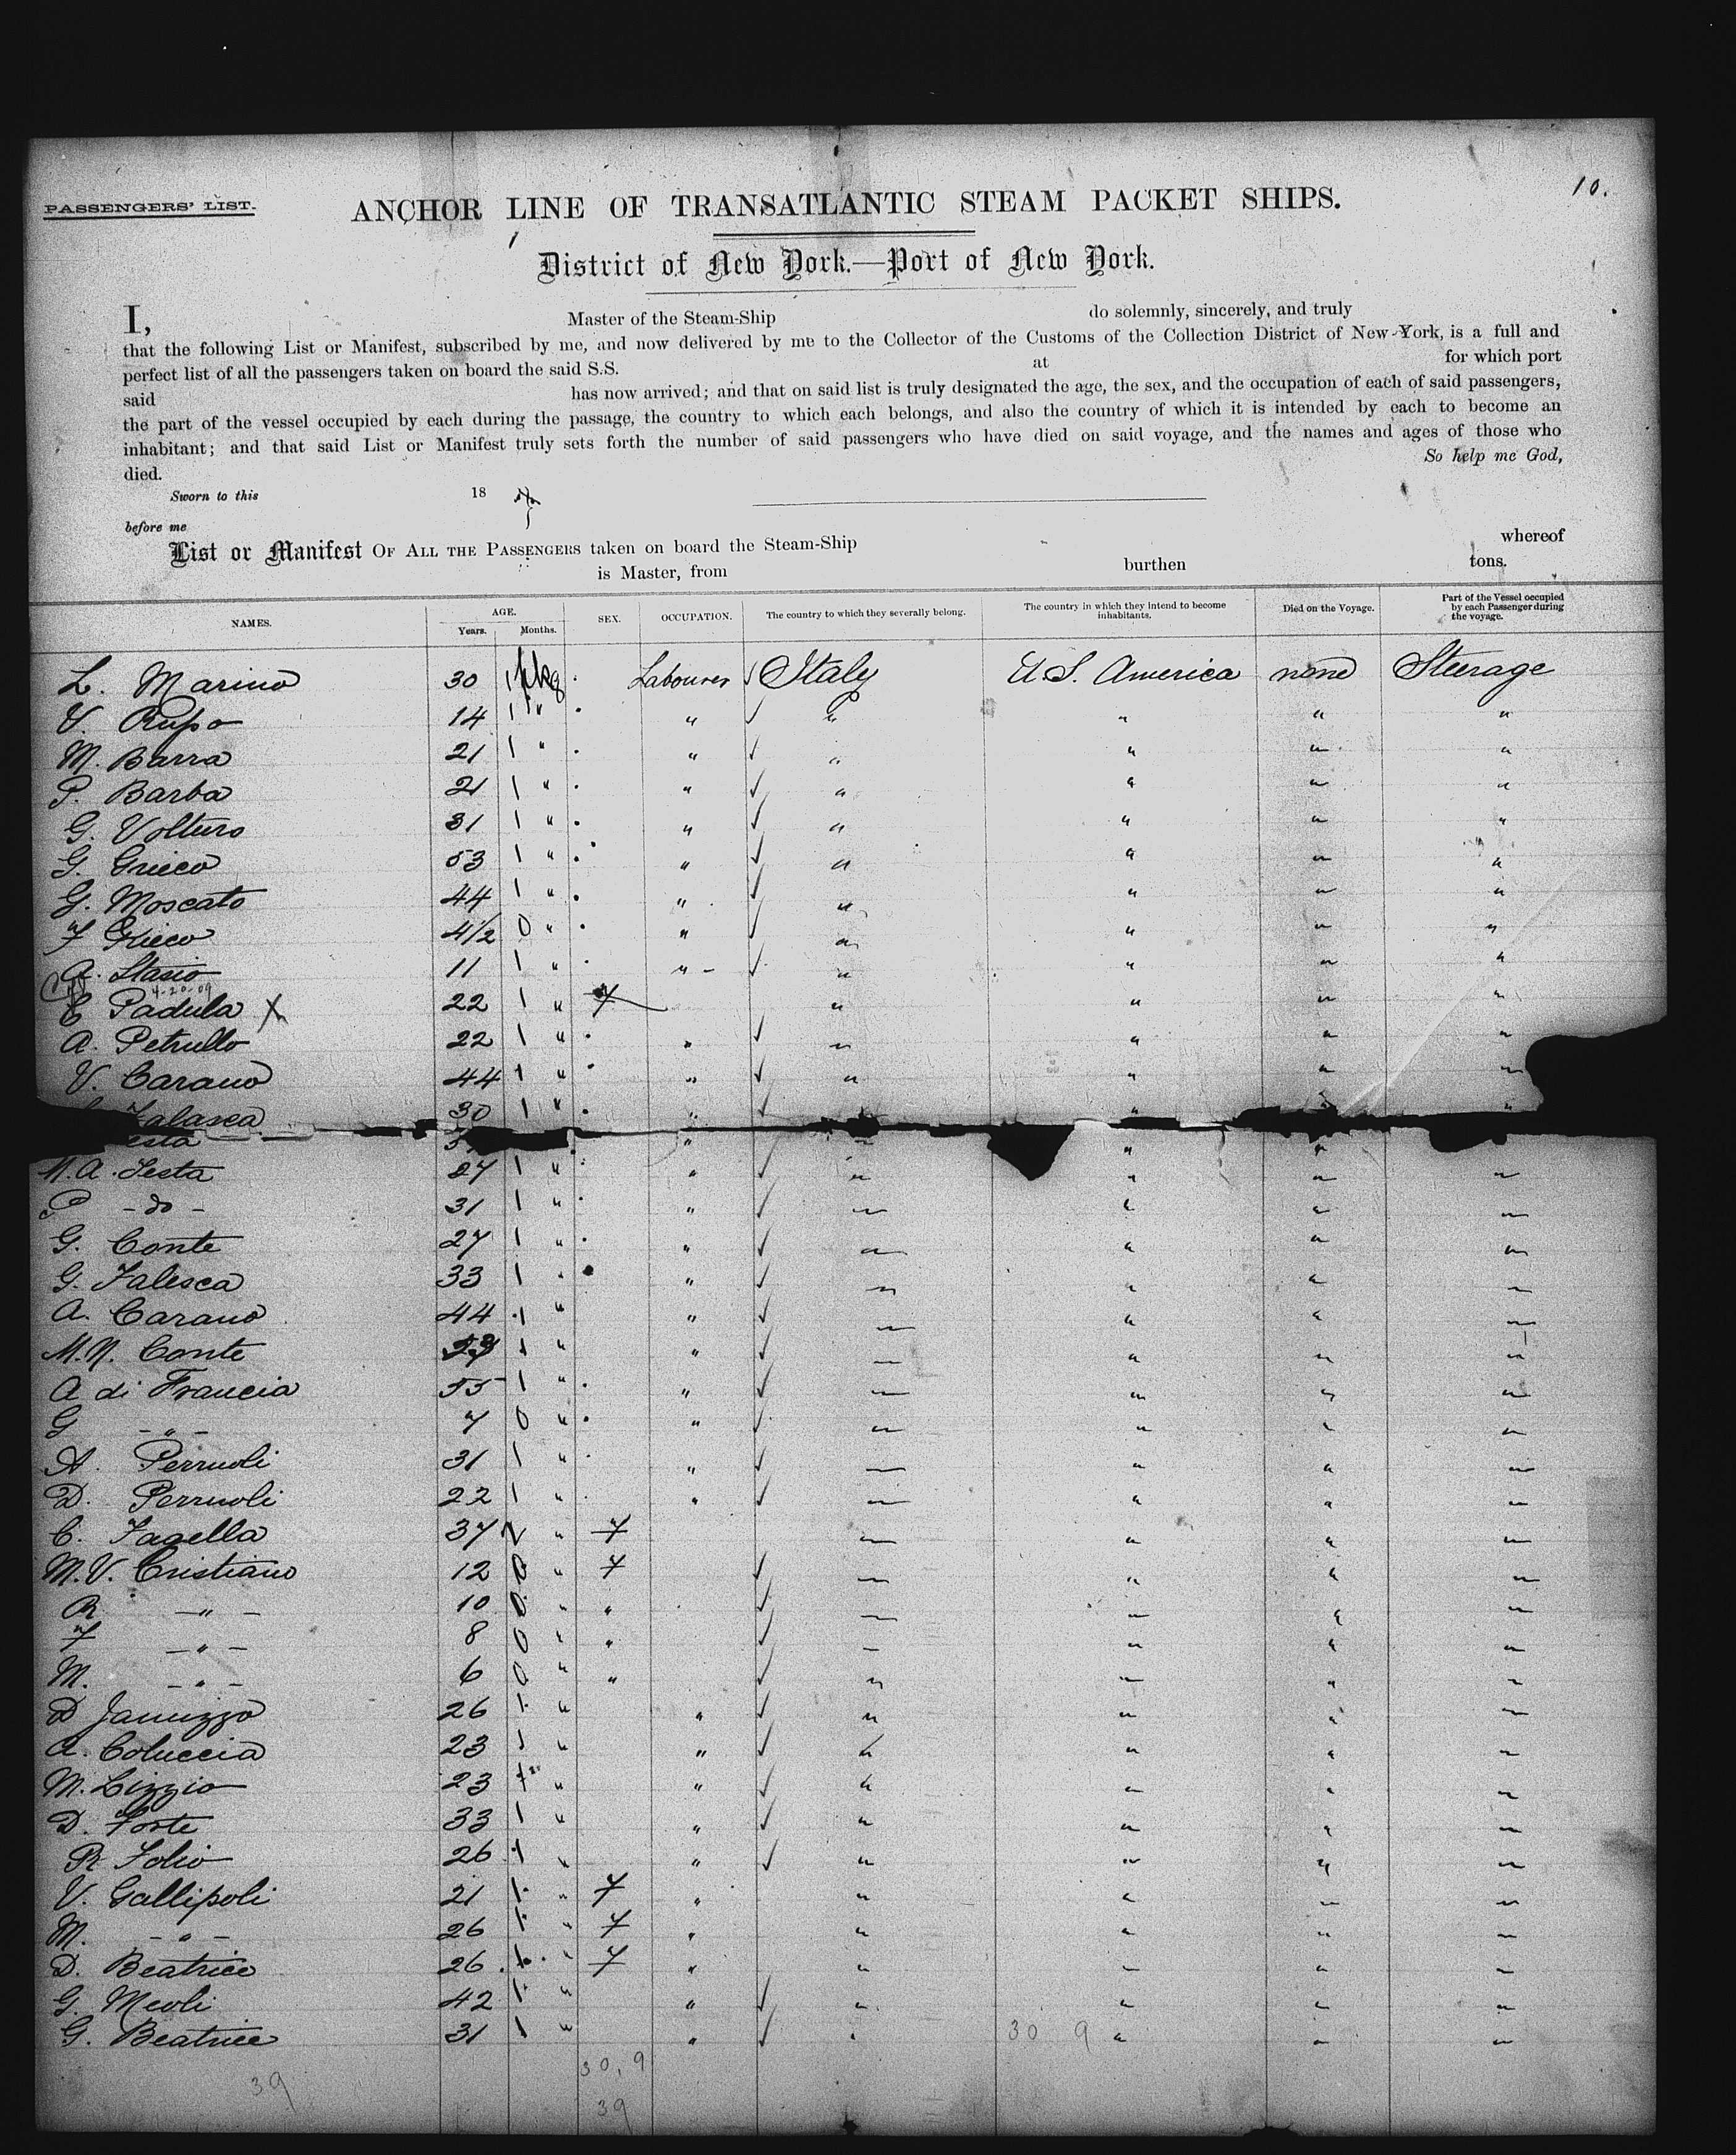 10.
PASSENGERS' LIST.
ANCHOR LINE OF TRANSATLANTIC STEAM PACKET SHIPS.
District of New York.—Port of New York.
I, Master of the Steam-Ship do solemnly, sincerely, and truly
that the following List or Manifest, subscribed by me, and now delivered by me to the Collector of the Customs of the Collection District of New-York, is a full and
perfect list of all the passengers taken on board the said S.S. at for which port
said has now arrived; and that on said list is truly designated the age, the sex, and the occupation of each of said passengers,
the part of the vessel occupied by each during the passage, the country to which each belongs, and also the country of which it is intended by each to become an
inhabitant; and that said List or Manifest truly sets forth the number of said passengers who have died on said voyage, and the names and ages of those who
died. So help me God,
Sworn to this 18
before me
List or Manifest OF ALL THE PASSENGERS taken on board the Steam-Ship whereof
is Master, from burthen tons.
NAMES. AGE. Years. Months. SEX. OCCUPATION. The country to which they severally belong. The country in which they intend to become inhabitants. Died on the Voyage. Part of the Vessel occupied by each Passenger during the voyage.
L. Marino 30 1 pkg Labourer ✓ Italy U.S. America none Steerage
V. Rupo 14 1 " " ✓ " " " "
M. Barra 21 1 " " ✓ " " " "
P. Barba 21 1 " " ✓ " " " "
G. Volturo 31 1 " " ✓ " " " "
G. Grieco 53 1 " " ✓ " " " "
G. Moscato 44 1 " " ✓ " " " "
F Grieco 4 1/2 0 " " ✓ " " " "
A. Stasio 11 1 " " - ✓ " " " "
4-20-09
C Padula X 22 1 " F " " " "
A. Petrullo 22 1 " " ✓ " " " "
V. Carano 44 1 " " ✓ " " " "
Falasca 30 1 " " ✓ " " "
esta " " "
M.A. Testa 27 1 " " ✓ " " " "
P - do - 31 1 " " ✓ " " " "
G. Conte 27 1 " " ✓ " " " "
G. Falesca 33 1 " " ✓ " " " "
A. Carano 44 1 " " ✓ " " " "
M.N. Conte 1 " " ✓ " " " "
A di Francia 55 1 " " ✓ " " " "
G - " - 7 0 " " ✓ " " " "
A. Perruoli 31 1 " " ✓ " " " "
D. Perruoli 22 1 " " ✓ " " " "
C. Fagella 37 2 " F " " " "
M.V. Cristiano 12 0 " F ✓ " " " "
R - " - 10 0 " " ✓ " " " "
F - " - 8 0 " " ✓ " " " "
M. - " - 6 0 " " ✓ " " " "
D Januzzo 26 1 " " ✓ " " " "
A. Coluccia 23 1 " " ✓ " " " "
M. Lizzio 23 1 " " ✓ " " " "
D. Forte 33 1 " " ✓ " " " "
R Folio 26 1 " " ✓ " " " "
V. Gallipoli 21 1 " F " " " " "
M. - " - 26 1 " F " " " " "
D. Beatrice 26 1 " F " " " " "
G. Meoli 42 1 " " ✓ " " " "
G. Beatrice 31 1 " " ✓ " " " "
30 9
30,9
39
39